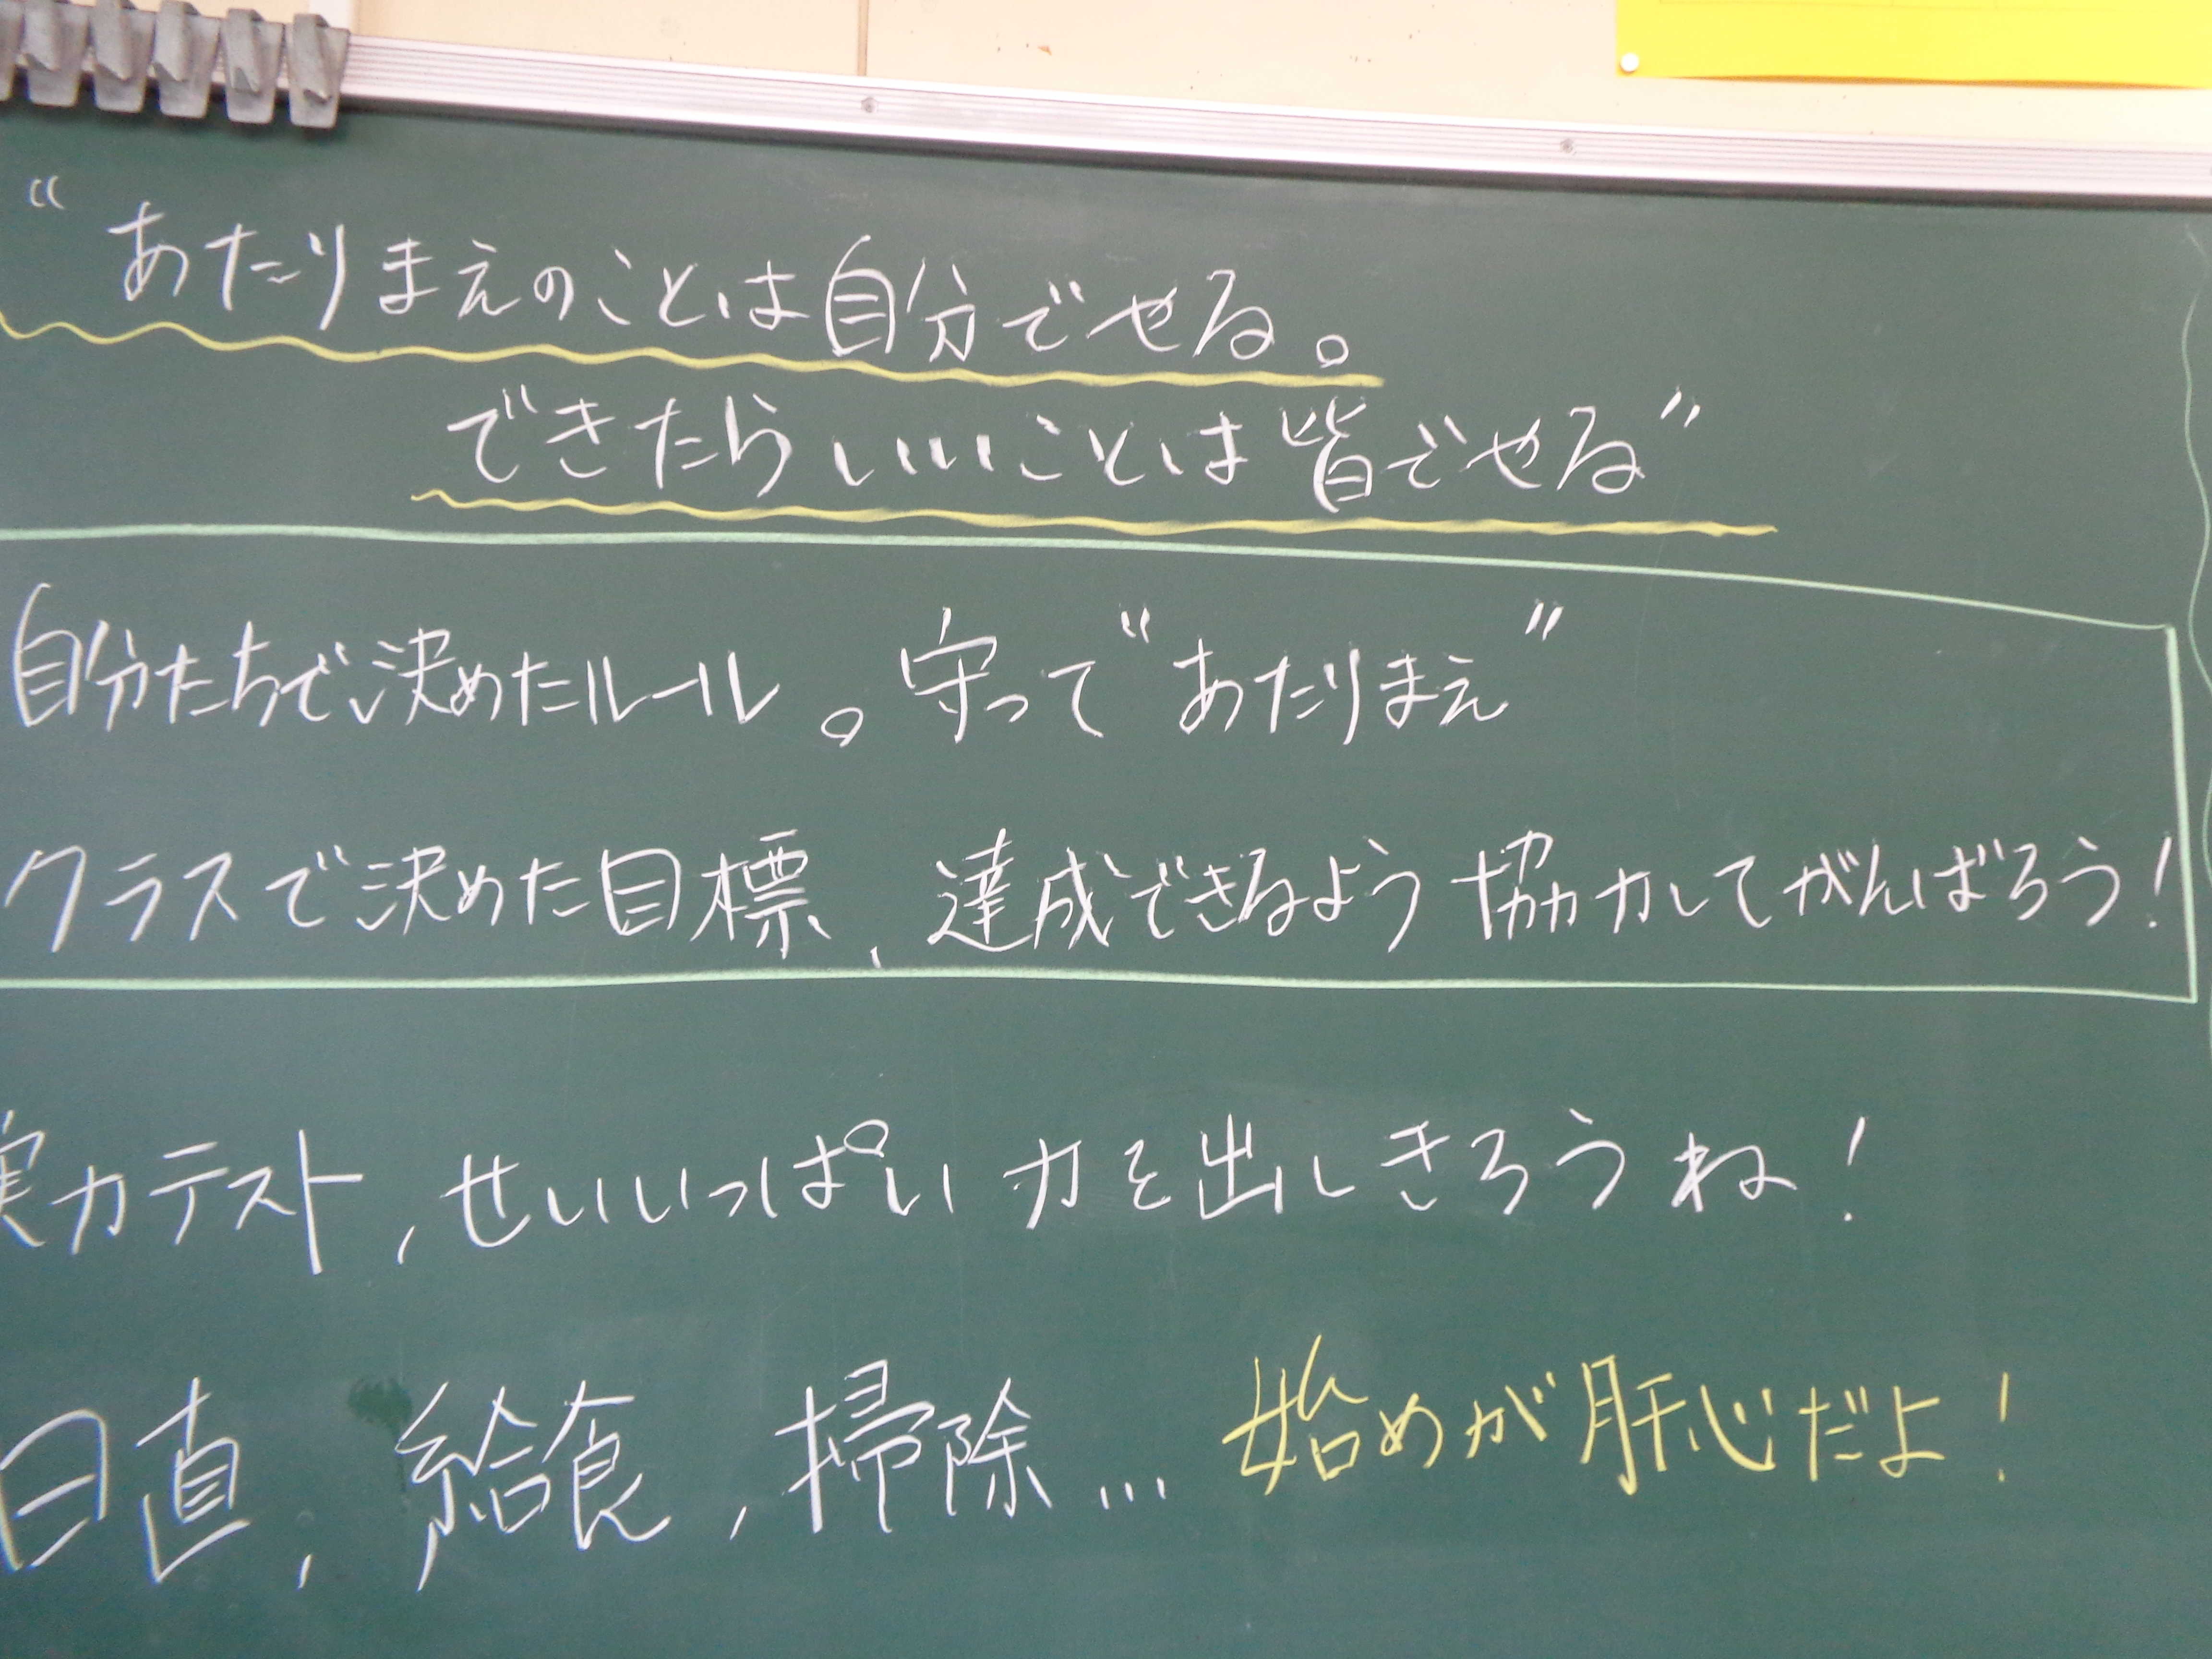 “あたりまえのことは自分でやる。
できたらいいことは皆でやる”
自分たちで決めたルール。守って“あたりまえ”
クラスで決めた目標、達成できるよう協力してがんばろう！
実力テスト，せいいっぱい力を出しきろうね！
日直，給食，掃除… 始めが肝心だよ！